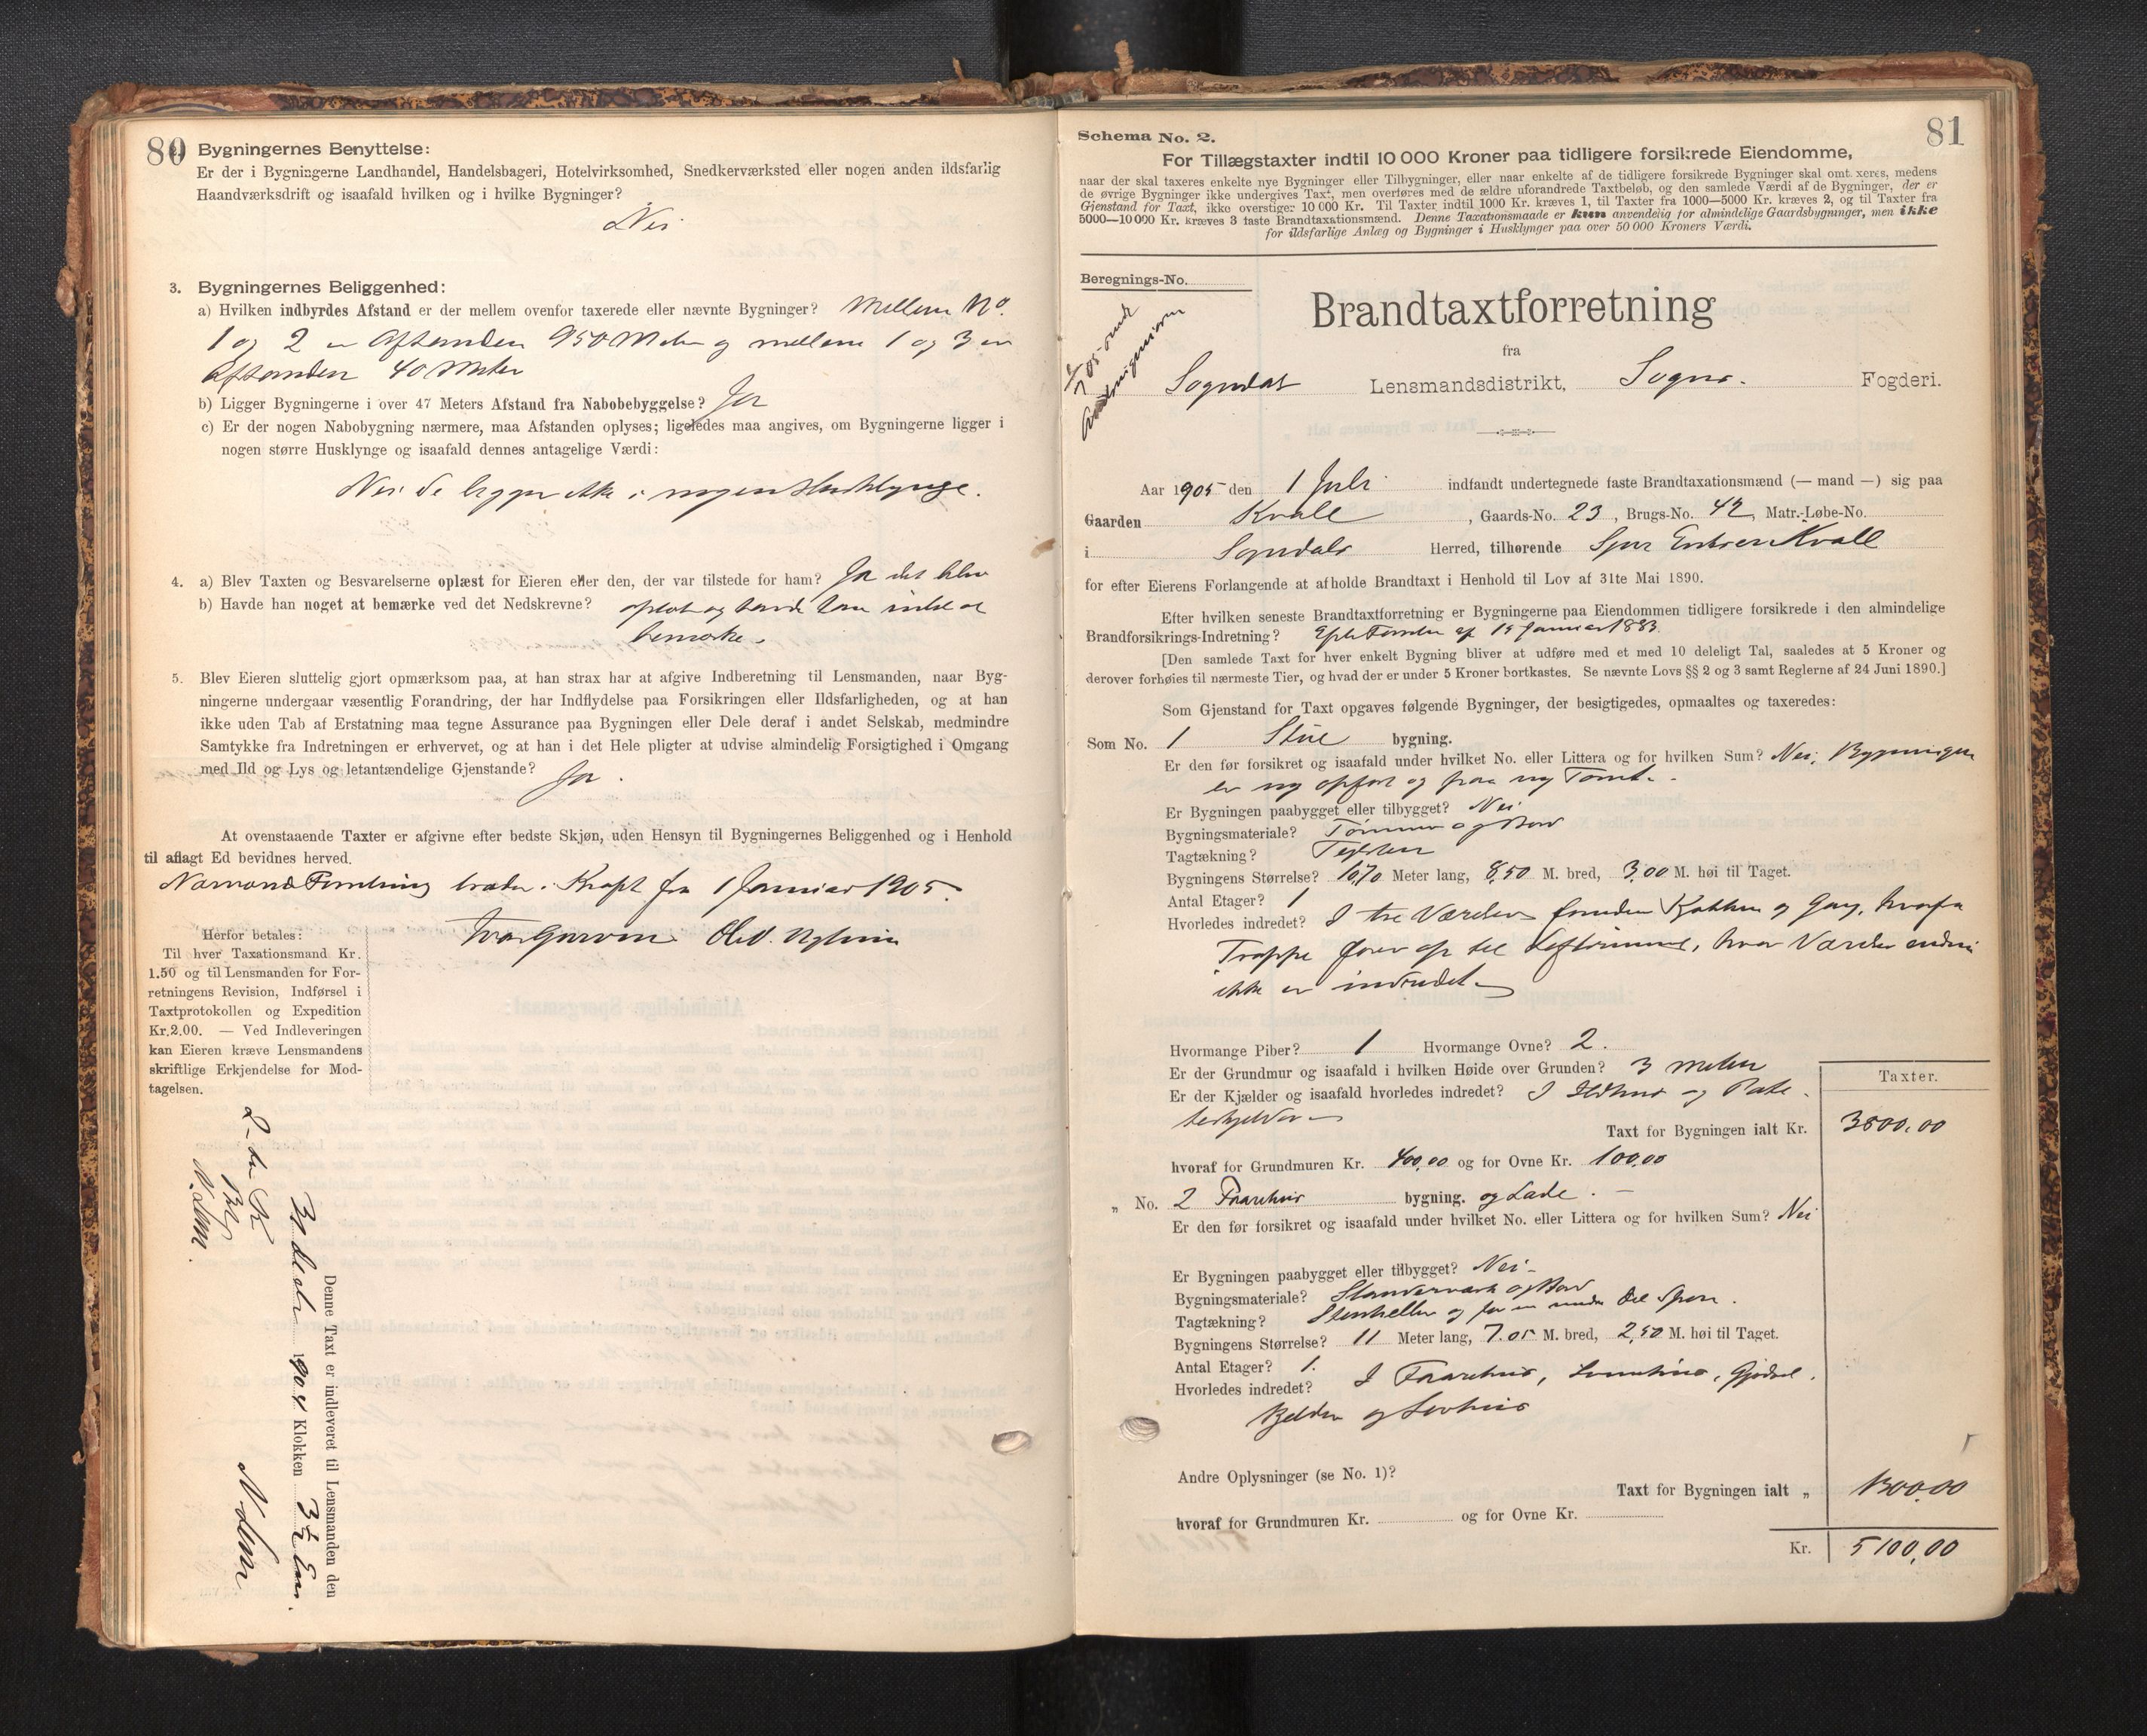 80
2. Bygningernes Benyttelse:
Er der i Bygningerne Landhandel, Handelsbageri, Hotelvirksomhed, Snedkerværksted eller nogen anden ildsfarlig
Haandværksdrift og isaafald hvilken og i hvilke Bygninger?
Nei
3. Bygningernes Beliggenhed:
a) Hvilken indbyrdes Afstand er der mellem ovenfor taxerede eller nævnte Bygninger? Mellem No.
1 og 2 er Afstanden 950 Meter og mellem 1 og 3 er
Afstanden 40 Meter
b) Ligger Bygningerne i over 47 Meters Afstand fra Nabobebyggelse? Ja
c) Er der nogen Nabobygning nærmere, maa Afstanden oplyses; ligeledes maa angives, om Bygningerne ligger i
nogen større Husklynge og isaafald dennes antagelige Værdi:
Nei de ligger ikke i nogen Husklynge.
4. a) Blev Taxten og Besvarelserne oplæst for Eieren eller den, der var tilstede for ham? Ja det blev
b) Havde han noget at bemærke ved det Nedskrevne? oplæst og havde han intet at
bemærke.
5. Blev Eieren sluttelig gjort opmærksom paa, at han strax har at afgive Indberetning til Lensmanden, naar Byg-
ningerne undergaar væsentlig Forandring, der har Indflydelse paa Forsikringen eller Ildsfarligheden, og at han
ikke uden Tab af Erstatning maa tegne Assurance paa Bygningen eller Dele deraf i andet Selskab, medmindre
Samtykke fra Indretningen er erhvervet, og at han i det Hele pligter at udvise almindelig Forsigtighed i Omgang
med Ild og Lys og letantændelige Gjenstande? Ja.
At ovenstaaende Taxter er afgivne efter bedste Skjøn, uden Hensyn til Bygningernes Beliggenhed og i Henhold
til aflagt Ed bevidnes herved.
træder i Kraft fra 1 Januar 1905.
Herfor betales:
Til hver Taxationsmand Kr.
1.50 og til Lensmanden for For-
retningens Revision, Indførsel i
Taxtprotokollen og Expedition
Kr.2.00. — Ved Indleveringen
kan Eieren kræve Lensmandens
skriftlige Erkjendelse for Mod-
tagelsen.
Denne Taxt er indleveret til Lensmanden den
1904 Klokken 3½ Em.
81
Schema No. 2.
For Tillægstaxter indtil 10 000 Kroner paa tidligere forsikrede Eiendomme,
naar der skal taxeres enkelte nye Bygninger eller Tilbygninger, eller naar enkelte af de tidligere forsikrede Bygninger skal omt xeres, medens
de øvrige Bygninger ikke undergives Taxt, men overføres med de ældre uforandrede Taxtbeløb, og den samlede Værdi af de Bygninger, der er
Gjenstand for Taxt, ikke overstiger 10 000 Kr. Til Taxter indtil 1000 Kr. kræves 1, til Taxter fra 1000—5000 Kr. kræves 2, og til Taxter fra
5000—10 000 Kr. kræves 3 faste Brandtaxationsmænd. Denne Taxationsmaade er kun anvendelig for almindelige Gaardsbygninger, men ikke
for ildsfarlige Anlæg og Bygninger i Husklynger paa over 50 000 Kroners Værdi.
Beregnings-No.
Brandtaxtforretning
fra
Sogndal Lensmandsdistrikt, Sogns Fogderi.
Aar 1905 den 1 Juli indfandt undertegnede faste Brandtaxationsmænd (— mand —) sig paa
Gaarden Kvale, Gaards-No. 23, Brugs-No. 42, Matr.-Løbe-No.
i Sogndals Herred, tilhørende Kvale
for efter Eierens Forlangende at afholde Brandtaxt i Henhold til Lov af 31te Mai 1890.
Efter hvilken seneste Brandtaxtforretning er Bygningerne paa Eiendommen tidligere forsikrede i den almindelige
Brandforsikrings-Indretning? Januar 1883.
[Den samlede Taxt for hver enkelt Bygning bliver at udføre med et med 10 deleligt Tal, saaledes at 5 Kroner og
derover forhøies til nærmeste Tier, og hvad der er under 5 Kroner bortkastes. Se nævnte Lovs §§ 2 og 3 samt Reglerne af 24 Juni 1890.]
Som Gjenstand for Taxt opgaves følgende Bygninger, der besigtigedes, opmaaltes og taxeredes:
Som No. 1 Stue bygning.
Er den før forsikret og isaafald under hvilket No. eller Littera og for hvilken Sum? Nei, Bygningen
er ny opført og paa ny Tomt.
Er Bygningen paabygget eller tilbygget? Nei
Bygningsmateriale? Tømmer og Bord
Tagtækning? Teglsten
Bygningens Størrelse? 10,70 Meter lang, 8,50 M. bred, 3,00 M. høi til Taget.
Antal Etager? 1
Hvorledes indredet? I tre Værelser foruden Kjøkken og Gang, hvorfra
Trappe fører op til Loftrummet, hvor Værelser endnu
ikke er indredet.
Hvormange Piber? 1 Hvormange Ovne? 2.
Er der Grundmur og isaafald i hvilken Høide over Grunden? 3 Meter
Er der Kjælder og isaafald hvorledes indredet? I Ildhus og Pote-
teskjelder
Taxter.
Taxt for Bygningen ialt Kr. 3800,00
hvoraf for Grundmuren Kr. 400,00 og for Ovne Kr. 100,00
„ No. 2 Faarehus bygning. og Lade.
Er den før forsikret og isaafald under hvilket No. eller Littera og for hvilken Sum? Nei
Er Bygningen paabygget eller tilbygget? Nei
Bygningsmateriale? Standerværk og Bord
Tagtækning? Stenheller og for en mindre Del Spon.
Bygningens Størrelse? 11 Meter lang, 7.05 M. bred, 2,50 M. høi til Taget.
Antal Etager? 1.
Hvorledes indredet? I Faarehus, Gjødsel-
kjelder og Løvhus
Andre Oplysninger (se No. 1)?
Taxt for Bygningen ialt „ 1300,00
hvoraf for Grundmuren Kr. og for Ovne Kr.
Kr. 5100,00